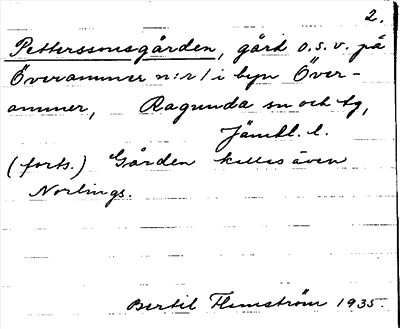 2.
Petterssonsgården, gård o.s.v. på
Överammer n:r 1 i byn Över-
ammer, Ragunda sn och tg,
Jämtl. l.
(forts.) Gården kallas även
Norlings.
Bertil Flemström 1935.